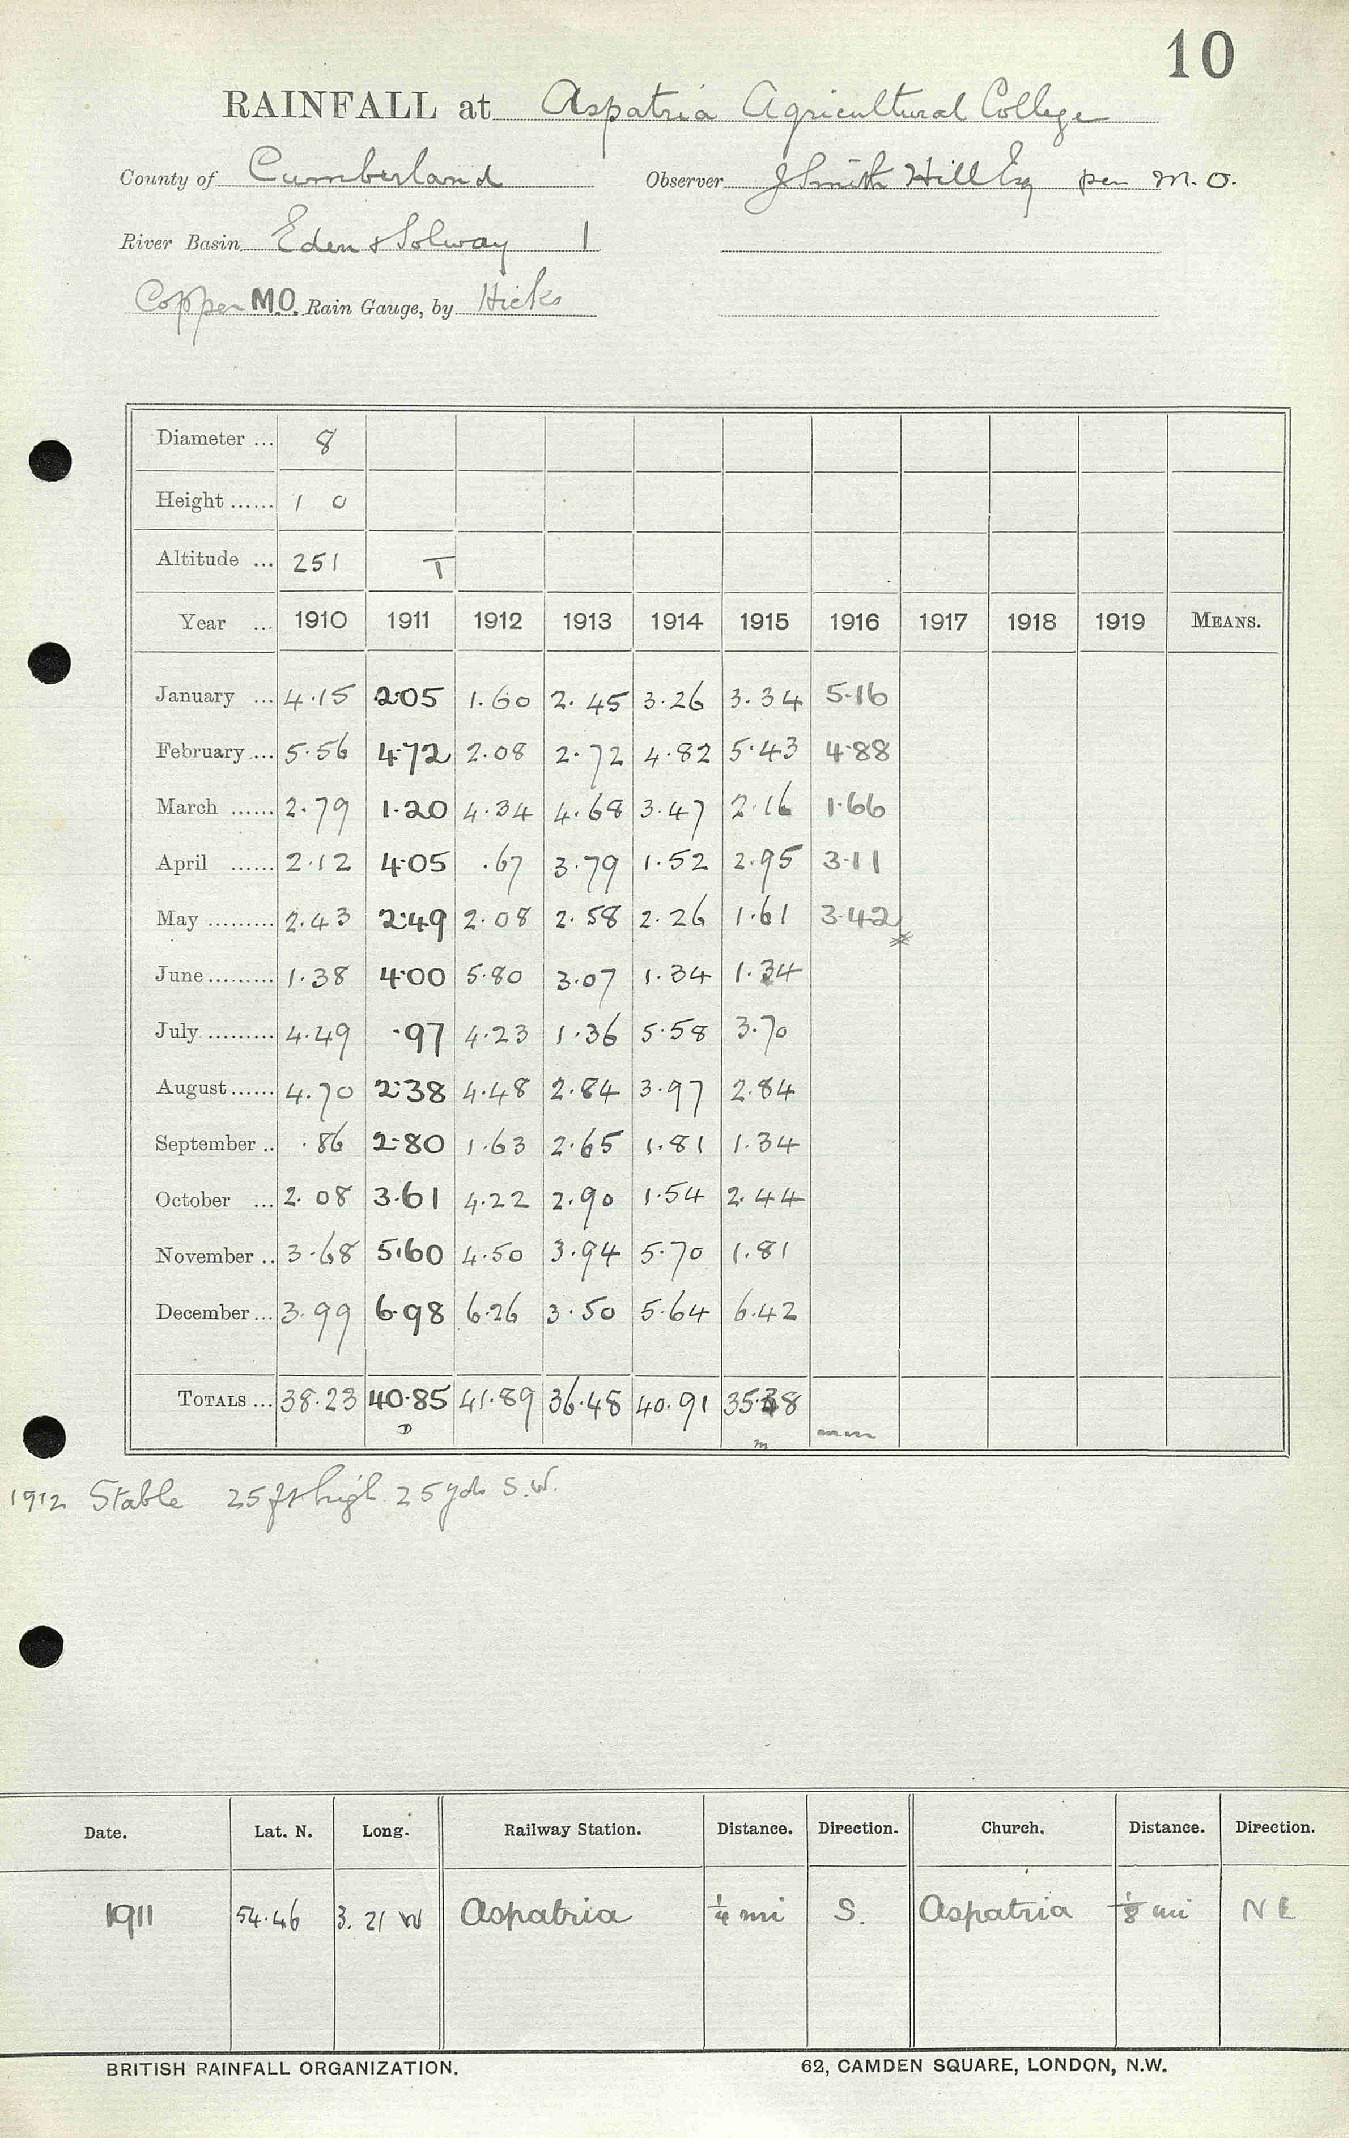 10
RAINFALL at Aspatria Agricultural College
County of Cumberland Observer J Smith Hill Esq per M.O.
River Basin Eden & Solway 1
Copper M.O. Rain Gauge, by Hicks
Diameter ... 8
Height ...... 1 0
Altitude ... 251 T
Year ... 1910 1911 1912 1913 1914 1915 1916 1917 1918 1919 MEANS.
January ... 4.15 2.05 1.60 2.45 3.26 3.34 5.16
February ... 5.56 4.72 2.08 2.72 4.82 5.43 4.88
March ...... 2.79 1.20 4.34 4.68 3.47 2.16 1.66
April ...... 2.12 4.05 .67 3.79 1.52 2.95 3.11
May ......... 2.43 2.49 2.08 2.58 2.26 1.61 3.42 *
June ......... 1.38 4.00 5.80 3.07 1.34 1.34
July ......... 4.49 .97 4.23 1.36 5.58 3.70
August ...... 4.70 2.38 4.48 2.84 3.97 2.84
September .. .86 2.80 1.63 2.65 1.81 1.34
October ... 2.08 3.61 4.22 2.90 1.54 2.44
November .. 3.68 5.60 4.50 3.94 5.70 1.81
December ... 3.99 6.98 6.26 3.50 5.64 6.42
TOTALS ... 38.23 40.85 41.89 36.48 40.91 35.38
D m
1912 Stable 25 ft high 25 yds S.W.
Date. Lat. N. Long. Railway Station. Distance. Direction. Church. Distance. Direction.
1911 54.46 3. 21 W Aspatria ¼ mi S. Aspatria ⅛ mi NE
BRITISH RAINFALL ORGANIZATION. 62, CAMDEN SQUARE, LONDON, N.W.